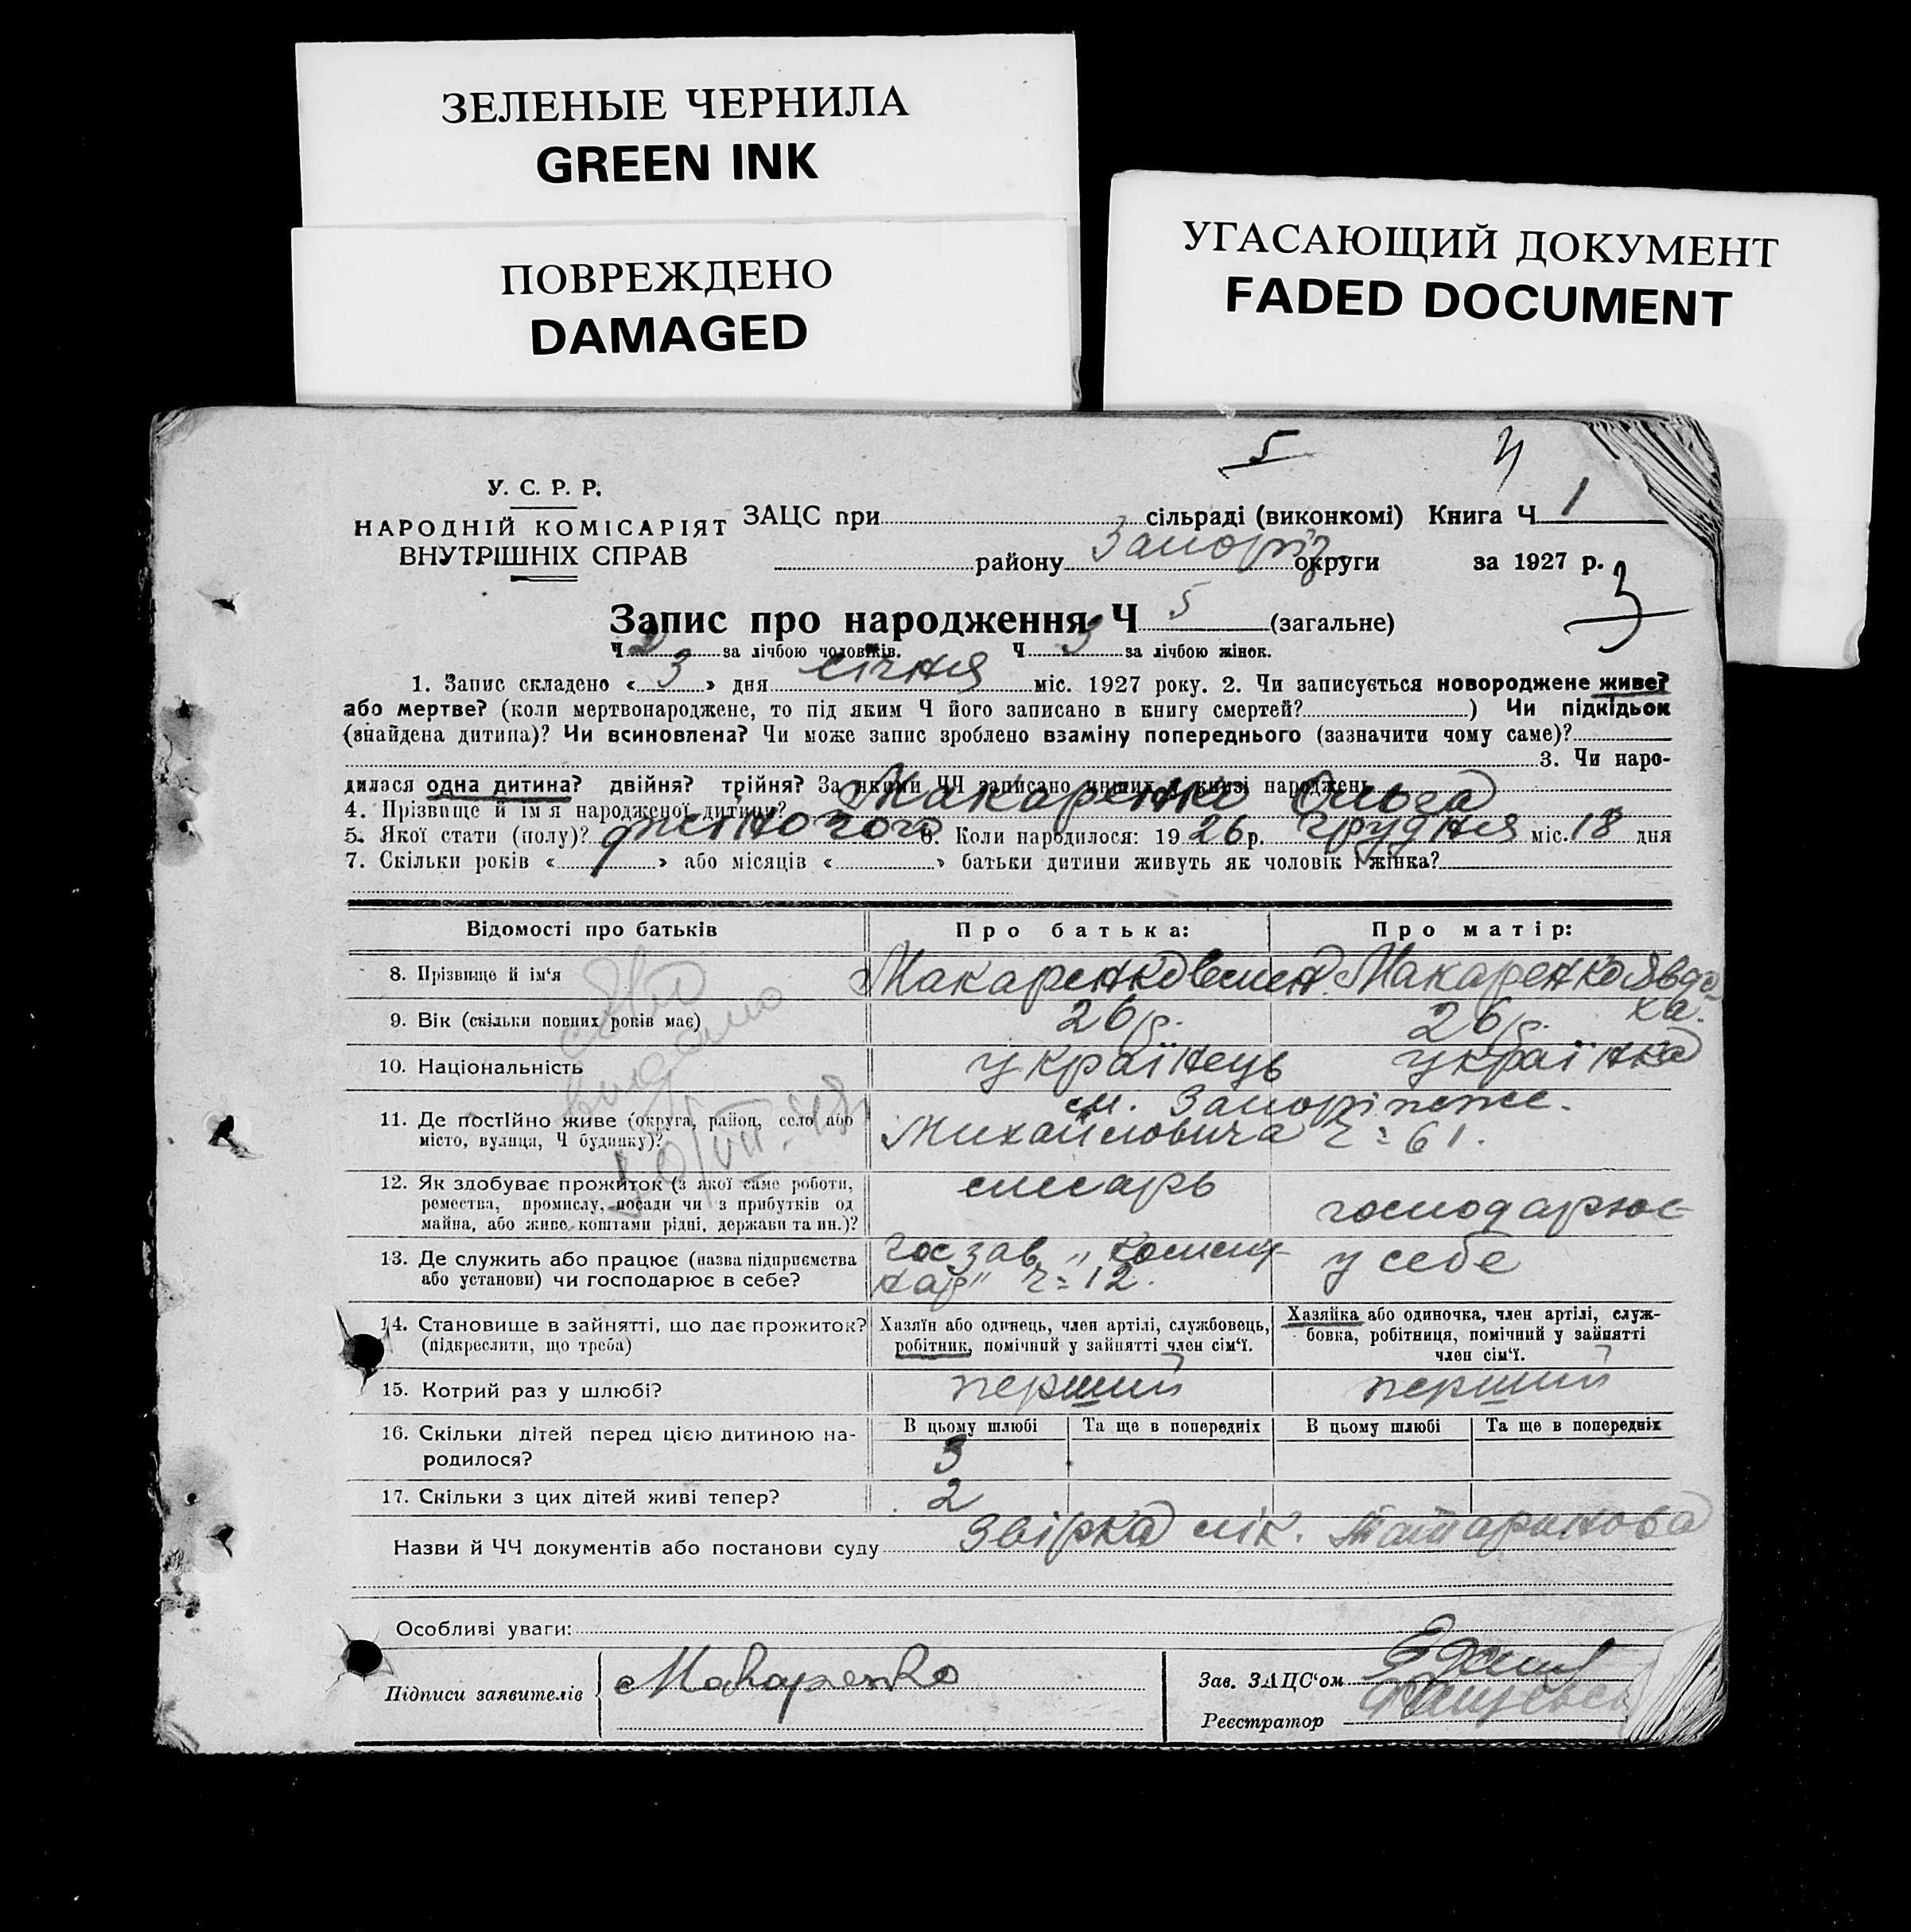 ЗЕЛЕНЫЕ ЧЕРНИЛА
GREEN INK
ПОВРЕЖДЕНО
DAMAGED
УГАСАЮЩИЙ ДОКУМЕНТ
FADED DOCUMENT
5
У. С. Р. Р.
НАРОДНІЙ КОМІСАРІЯТ
ВНУТРІШНІХ СПРАВ
ЗАЦС при сільраді (виконкомі) Книга Ч 1
району Запоріз. округи за 1927 р.
3
Запис про народження Ч 5 (загальне)
Ч 2 за лічбою чоловіків. Ч 3 за лічбою жінок.
1. Запис складено « 3 » дня січня міс. 1927 року. 2. Чи записується новороджене живе?
або мертве? (коли мертвонароджене, то під яким Ч його записано в книгу смертей? ) Чи підкідьок
(знайдена дитина)? Чи всиновлена? Чи може запис зроблено взаміну попереднього (зазначити чому саме)?
3. Чи наро-
дилася одна дитина? двійня? трійня? За якими ЧЧ записано инших в книзі народжень
4. Прізвище й ім'я народженої дитини? Макаренко Ольга
5. Якої стати (полу)? жіночого 6. Коли народилося: 1926 р. грудня міс. 18 дня
7. Скільки років « » або місяців « » батьки дитини живуть як чоловік і жінка?
Відомості про батьків Про батька: Про матір:
8. Прізвище й ім'я Макаренко Семен. Макаренко Явдо
ха.
9. Вік (скільки повних років має) 26 р. 26 р.
10. Національність українець українка
11. Де постійно живе (округа, район, село або
місто, вулиця, Ч будинку)?
м. Запоріжже.
Михайловича Ч = 61.
12. Як здобуває прожиток (з якої саме роботи,
ремества, промислу, посади чи з прибутків од
майна, або живе коштами рідні, держави та ин.)?
слюсарь господарює
13. Де служить або працює (назва підприємства
або установи) чи господарює в себе?
Госзав. „Комму-
нар" Ч = 12. у себе
14. Становище в зайнятті, що дає прожиток?
(підкреслити, що треба)
Хазяїн або одинець, член артілі, службовець,
робітник, помічний у зайнятті член сім'ї.
Хазяйка або одиночка, член артілі, служ-
бовка, робітниця, помічний у зайнятті
член сім'ї.
15. Котрий раз у шлюбі? перший перший
16. Скільки дітей перед цією дитиною на-
родилося?
В цьому шлюбі Та ще в попередніх В цьому шлюбі Та ще в попередніх
3
17. Скільки з цих дітей живі тепер? 2
Назви й ЧЧ документів або постанови суду Звірка лік. Татаринова
Особливі уваги:
Підписи заявителів Макаренко
Зав. ЗАЦС'ом
Реєстратор